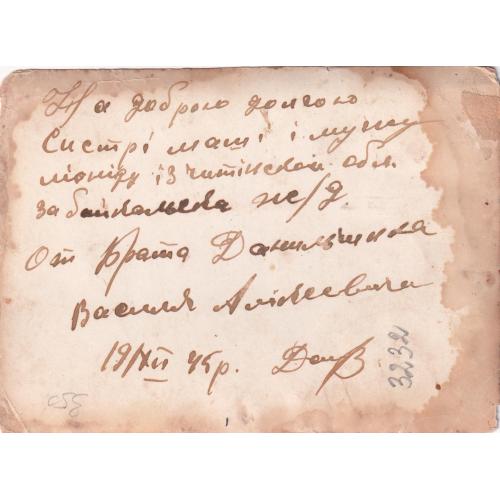 На добрую долгою
Систрі маті і мужу
леоніду із читінской обл.
Забайкальска ж/д.
От Брата Данильченка
Василия Алікеевича
19/XII 45р. ДанВ
3232
с55